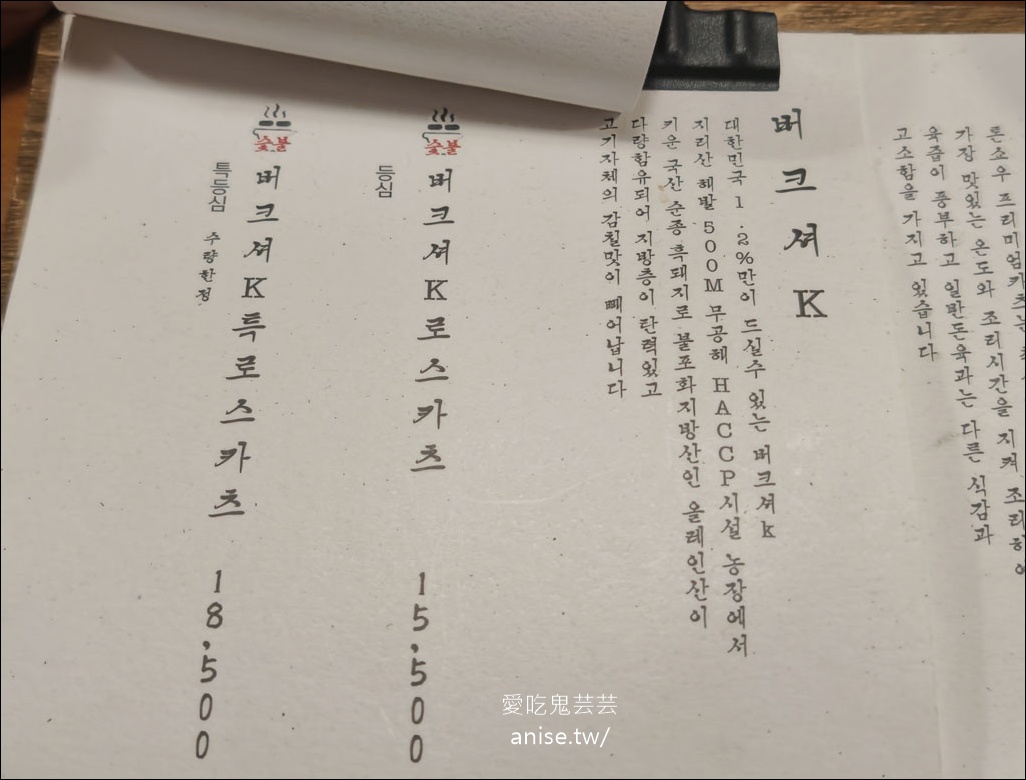 톤쇼우 프리미엄카츠는
가장 맛있는 온도와 조리시간을 지켜 조리하여
육즙이 풍부하고 일반돈육과는 다른 식감과
고소함을 가지고 있습니다
버크셔K
대한민국 1.2%만이 드실수 있는 버크셔k
지리산 해발 500M 무공해 HACCP시설 농장에서
키운 국산 순종 흑돼지로 불포화지방산인 올레인산이
다량함유되어 지방층이 탄력있고
고기자체의 감칠맛이 빼어납니다
숯불
버크셔K로스카츠 15,500
등심
숯불
버크셔K특로스카츠 18,500
특등심 수량한정
愛吃鬼芸芸
anise.tw/